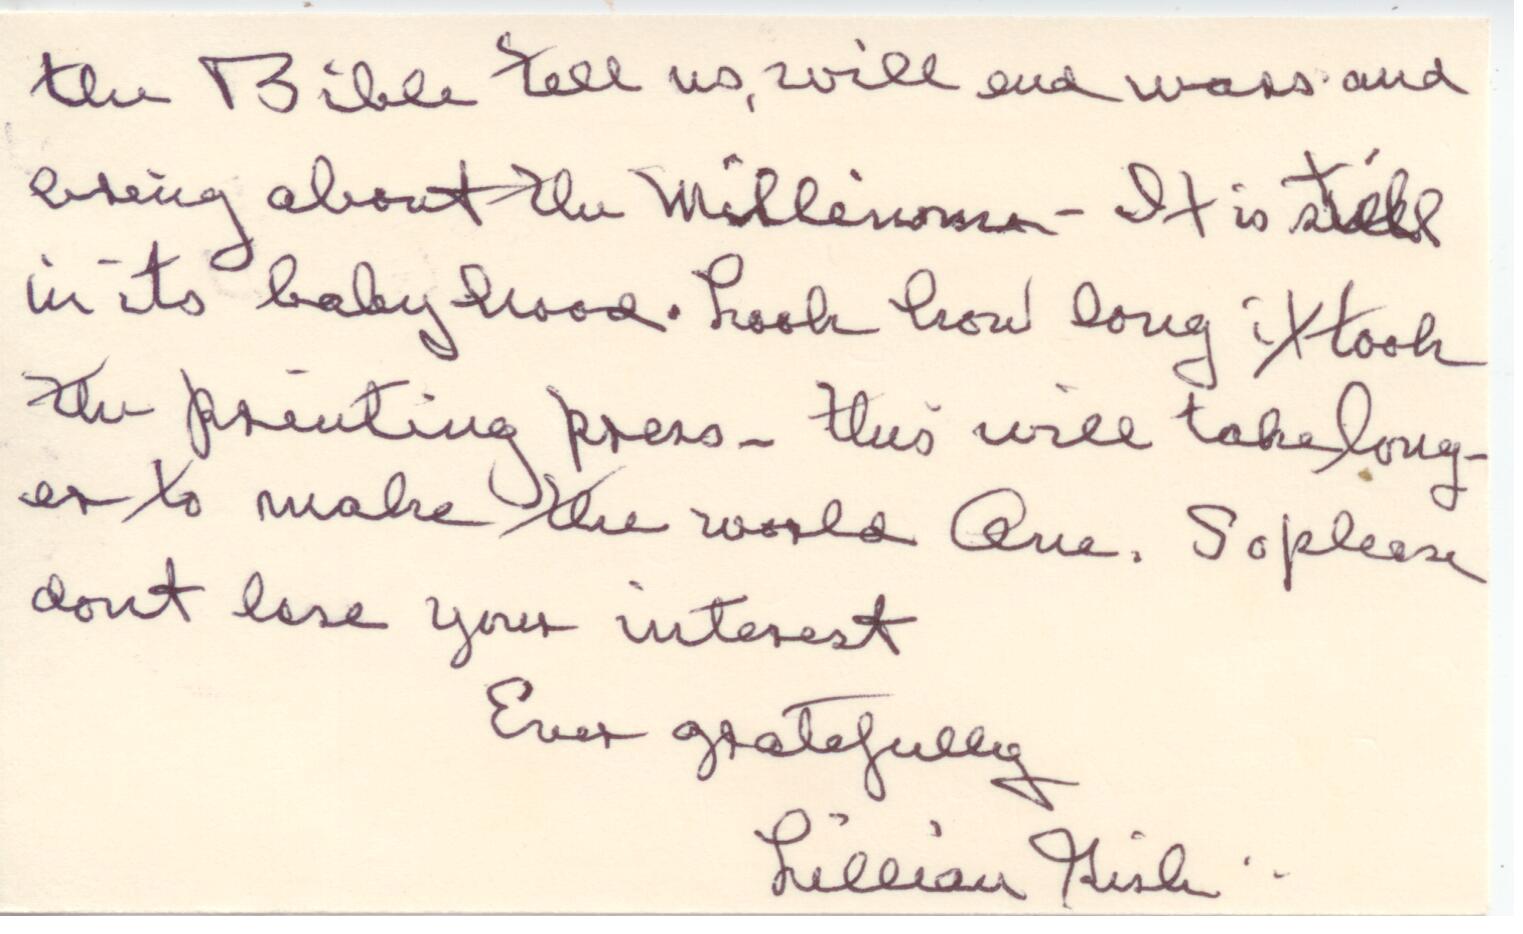 the Bible tell us, will end wars and
bring about the Millenoum - It is still
in its babyhood. Look how long it took
the printing press - this will take long-
er to make the world One. So please
dont lose your interest
Ever gratefully
Lillian Gish